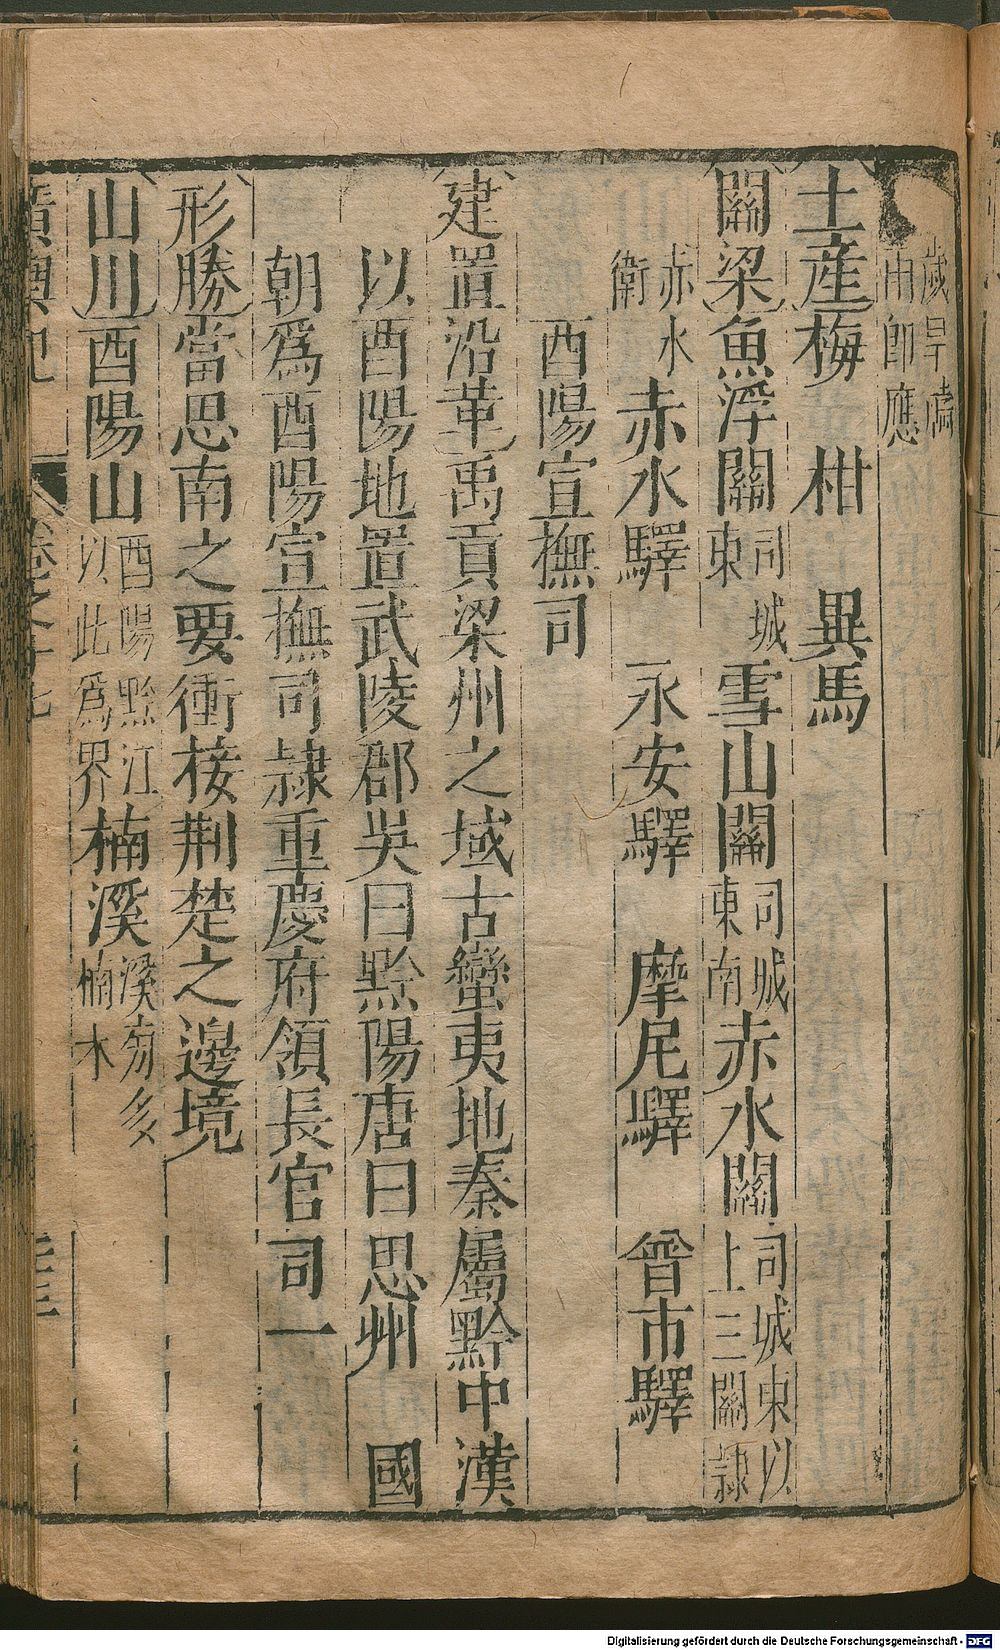 歲旱禱
雨即應
土產梅 柑 異馬
關梁魚浮關司城東雪山關司城東南赤水關司城東以上三關隷
赤水衛赤水驛 永安驛 摩尼驛 普市驛
酉陽宣撫司
建置沿革禹貢梁州之域古蠻夷地秦屬黔中漢
以酉陽地置武陵郡吳曰黔陽唐曰思州 國
朝爲酉陽宣撫司隷重慶府領長官司一
形勝當思南之要衝接荆楚之邊境
山川酉陽山酉陽黔江以此爲界楠溪溪旁多楠木
廣輿記 卷之十七 二十三
Digitalisierung gefördert durch die Deutsche Forschungsgemeinschaft - DFG